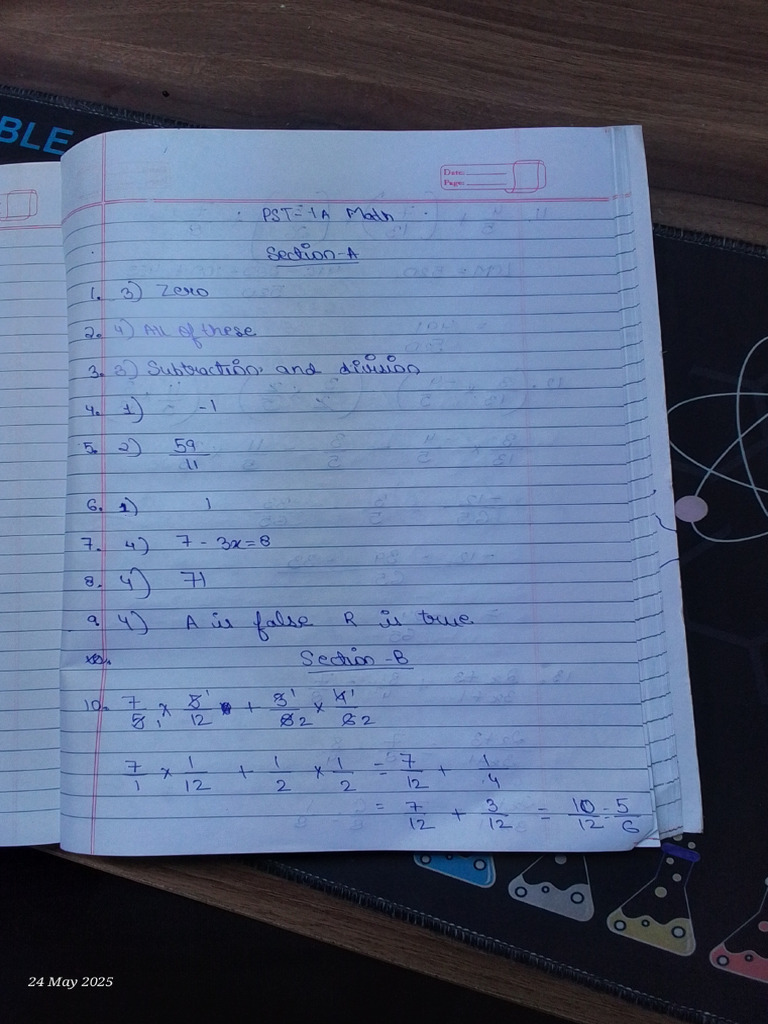 BLE
Date:
Page:
PST-1A Math
Section-A
1. 3) Zero
2. 4) All of these
3. 3) Subtraction and division
4. 1) -1
5. 2) 59/11
6. 1) 1
7. 4) 7 - 3x = 8
8. 4) 71
9 4) A is false R is true
10.
Section-B
10. 7/5 1 × 5 1/12 + 3 1/8 2 × 4 1/6 2
7/1 × 1/12 + 1/2 × 1/2 = 7/12 + 1/4
= 7/12 + 3/12 = 10/12 = 5/6
24 May 2025